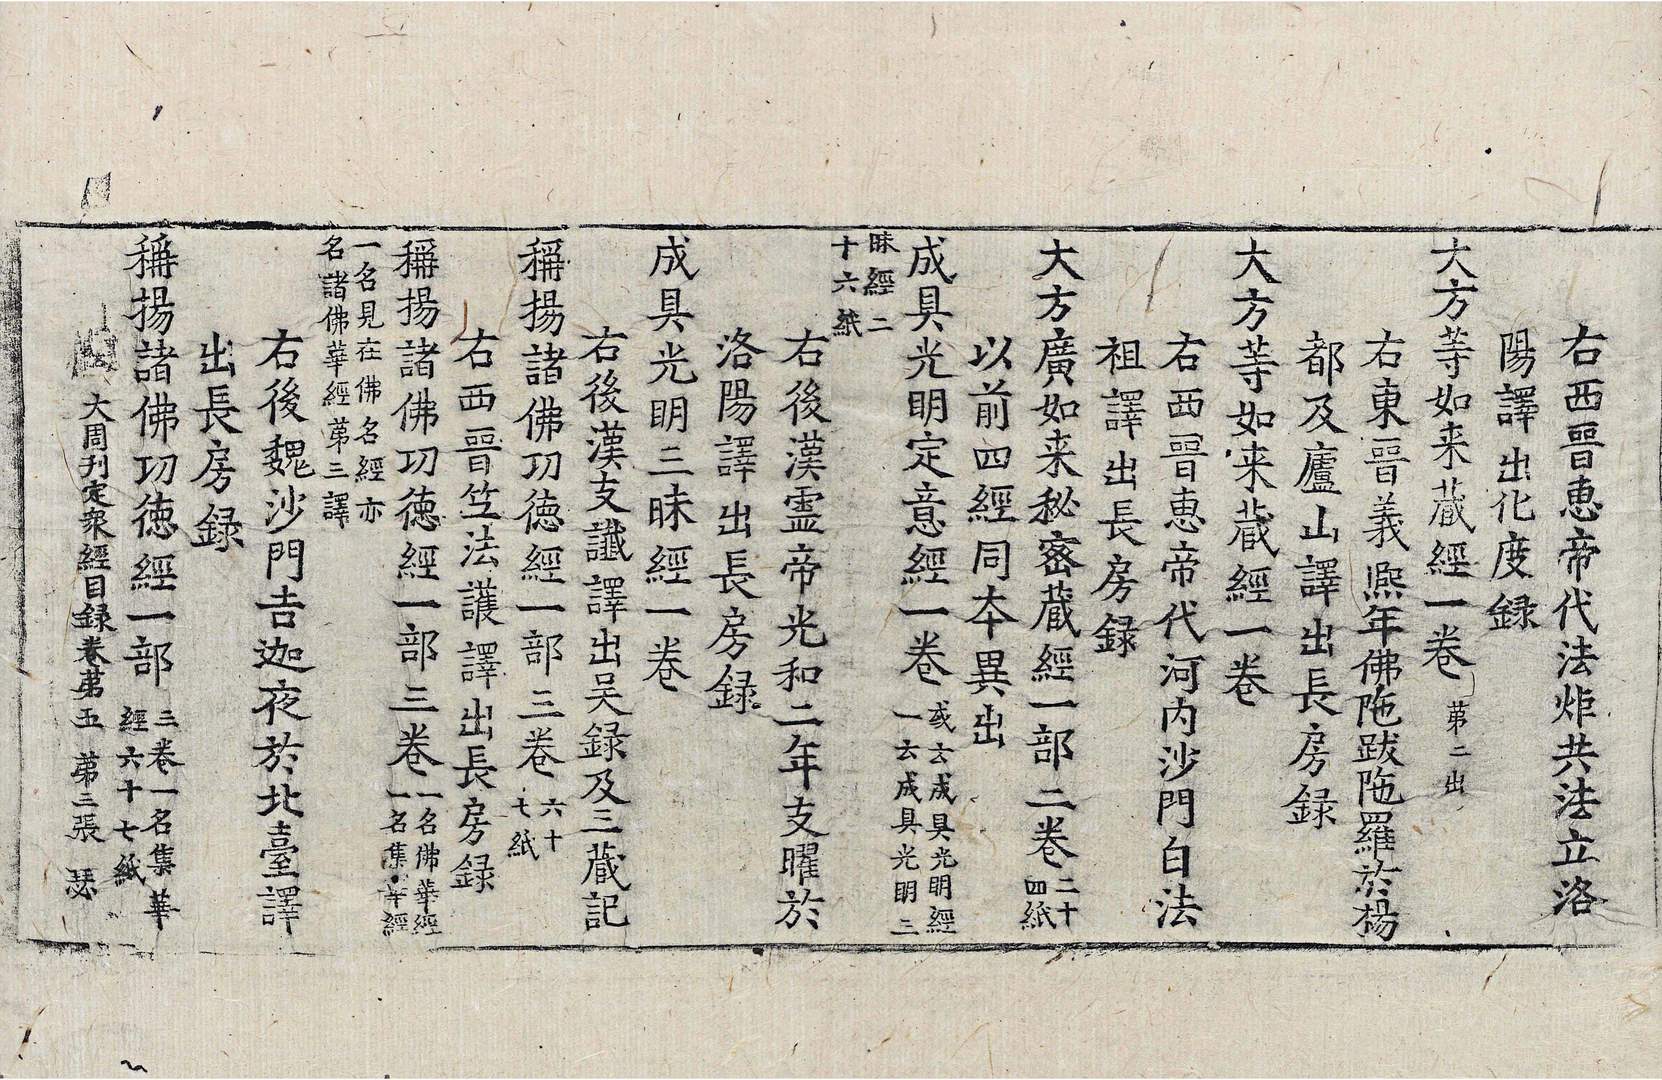 右西晉恵帝代法炬共法立洛
陽譯出化度録
大方等如来蔵經一卷 苐二出
右東晉義熙年佛陁跋陁羅於楊
都及廬山譯出長房録
大方等如来蔵經一卷
右西晉恵帝代河内沙門白法
祖譯出長房録
大方廣如来秘密蔵經一部二卷 二十
四紙
以前四經同本異出
成具光明定意經一卷 或云成具光明經
一云成具光明三
昧經二
十六紙
右後漢霊帝光和二年支曜於
洛陽譯出長房録
成具光明三昧經一卷
右後漢支讖譯出吴録及三蔵記
稱揚諸佛功徳經一部三卷 六十
七紙
右西晉笁法護譯出長房録
稱揚諸佛功徳經一部三卷 一名佛華經
一名集華經
一名見在佛名經亦
名諸佛華經苐三譯
右後魏沙門吉迦夜於北臺譯
出長房録
稱揚諸佛功徳經一部 三卷一名集華
經六十七紙
大周刊定衆經目録卷苐五 苐三張 瑟